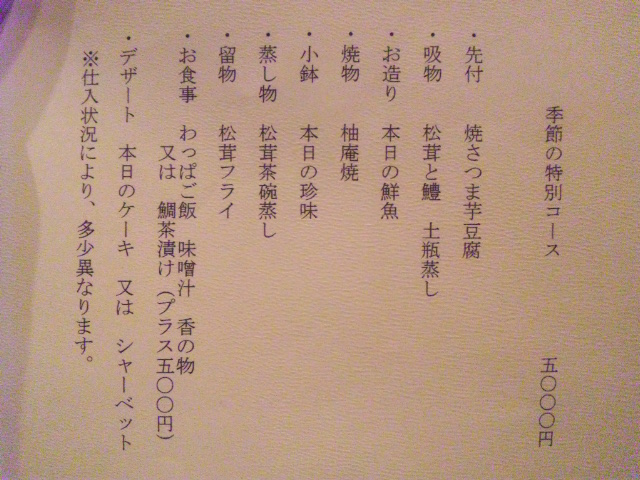 季節の特別コース　五〇〇〇円
・先付　焼さつま芋豆腐
・吸物　松茸と鱧　土瓶蒸し
・お造り　本日の鮮魚
・焼物　柚庵焼
・小鉢　本日の珍味
・蒸し物　松茸茶碗蒸し
・留物　松茸フライ
・お食事　わっぱご飯　味噌汁　香の物
又は　鯛茶漬け（プラス五〇〇円）
・デザート　本日のケーキ　又は　シャーベット
※仕入状況により、多少異なります。